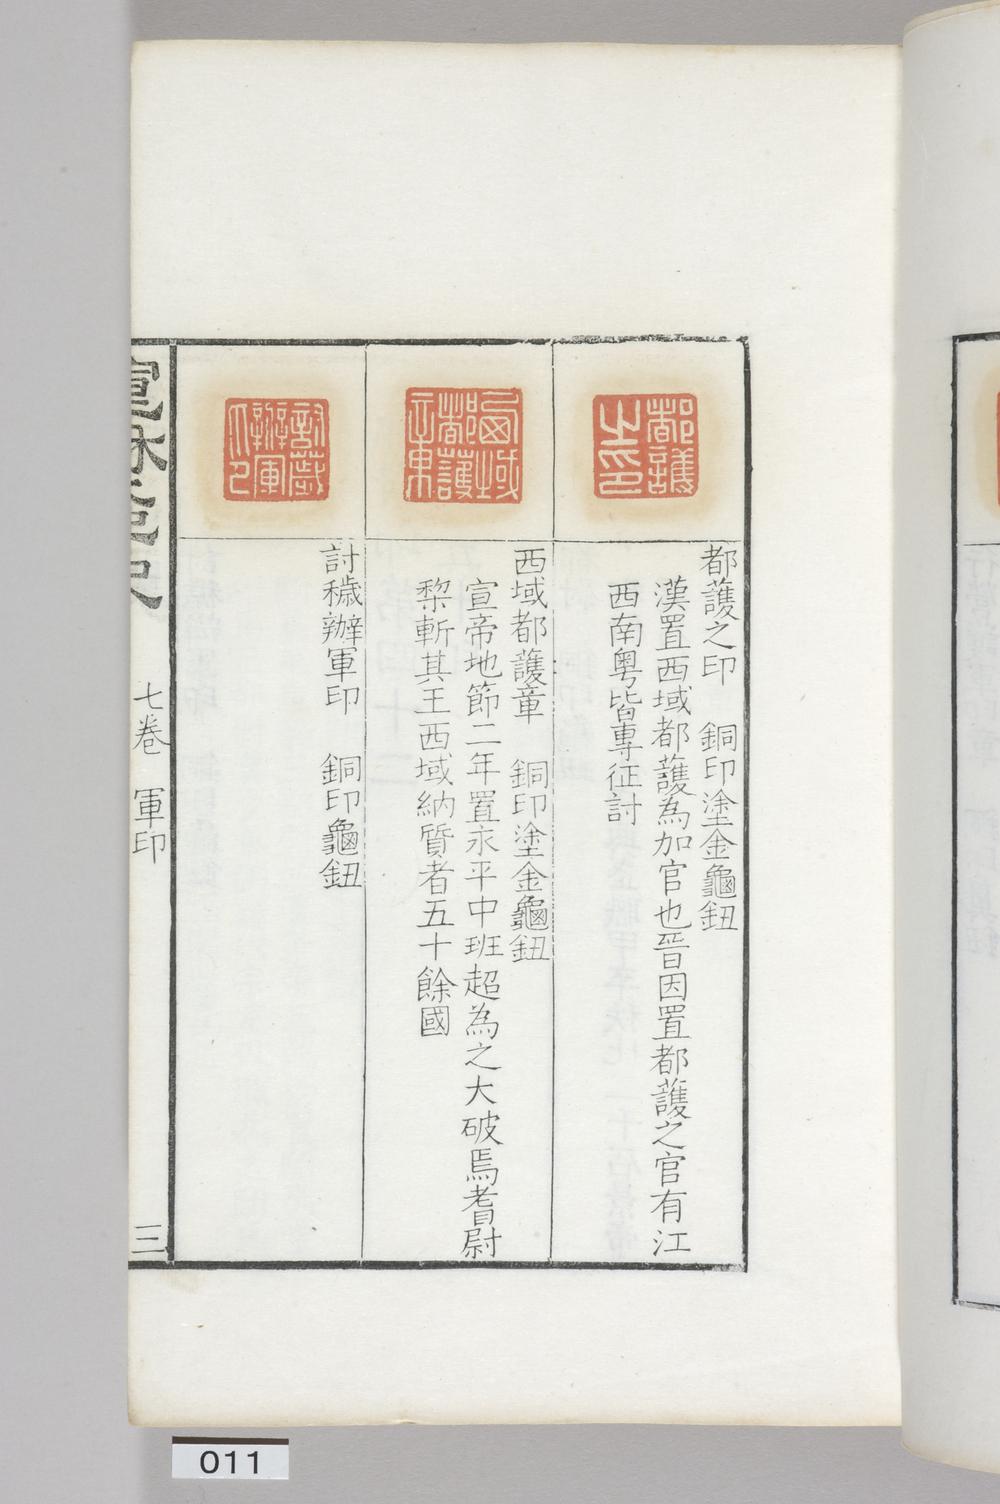 都護之印
西域都護章
討穢辦軍印
都護之印 銅印塗金龜鈕
漢置西域都護為加官也晉因置都護之官有江
西南粵皆專征討
西域都護章 銅印塗金龜鈕
宣帝地節二年置永平中班超為之大破焉耆尉
犂斬其王西域納質者五十餘國
討穢辦軍印 銅印龜鈕
宣龢集古印史 七卷 軍印 三
011